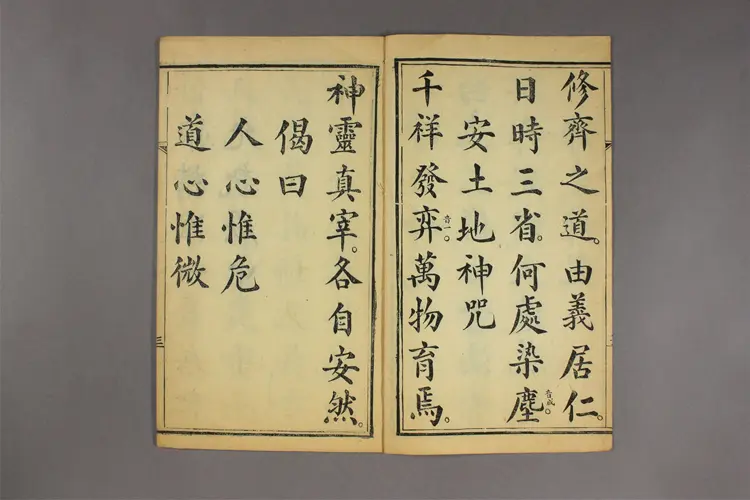 修齊之道。由義居仁。
日時三省。何處染塵。
安土地神咒
千祥發弈。萬物育焉。
神靈真宰。各自安然。
偈曰
人心惟危
道心惟微
三